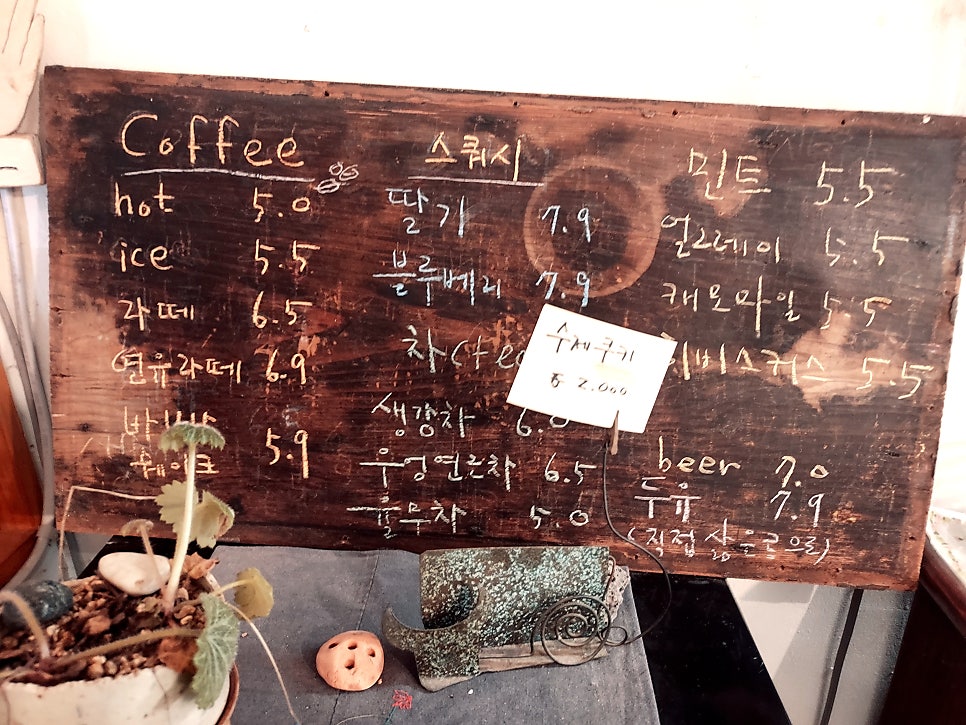 Coffee
hot 5.0
ice 5.5
라떼 6.5
연유라떼 6.9
5.9
스쿼시
딸기 7.9
블루베리 7.9
차(tea
생강차 6.0
우엉연근차 6.5
율무차 5.0
수제쿠키
2.000
민트 5.5
얼그레이 5.5
캐모마일 5.5
비스커스 5.5
beer 7.0
두유 7.9
(직접 삶은콩으로)